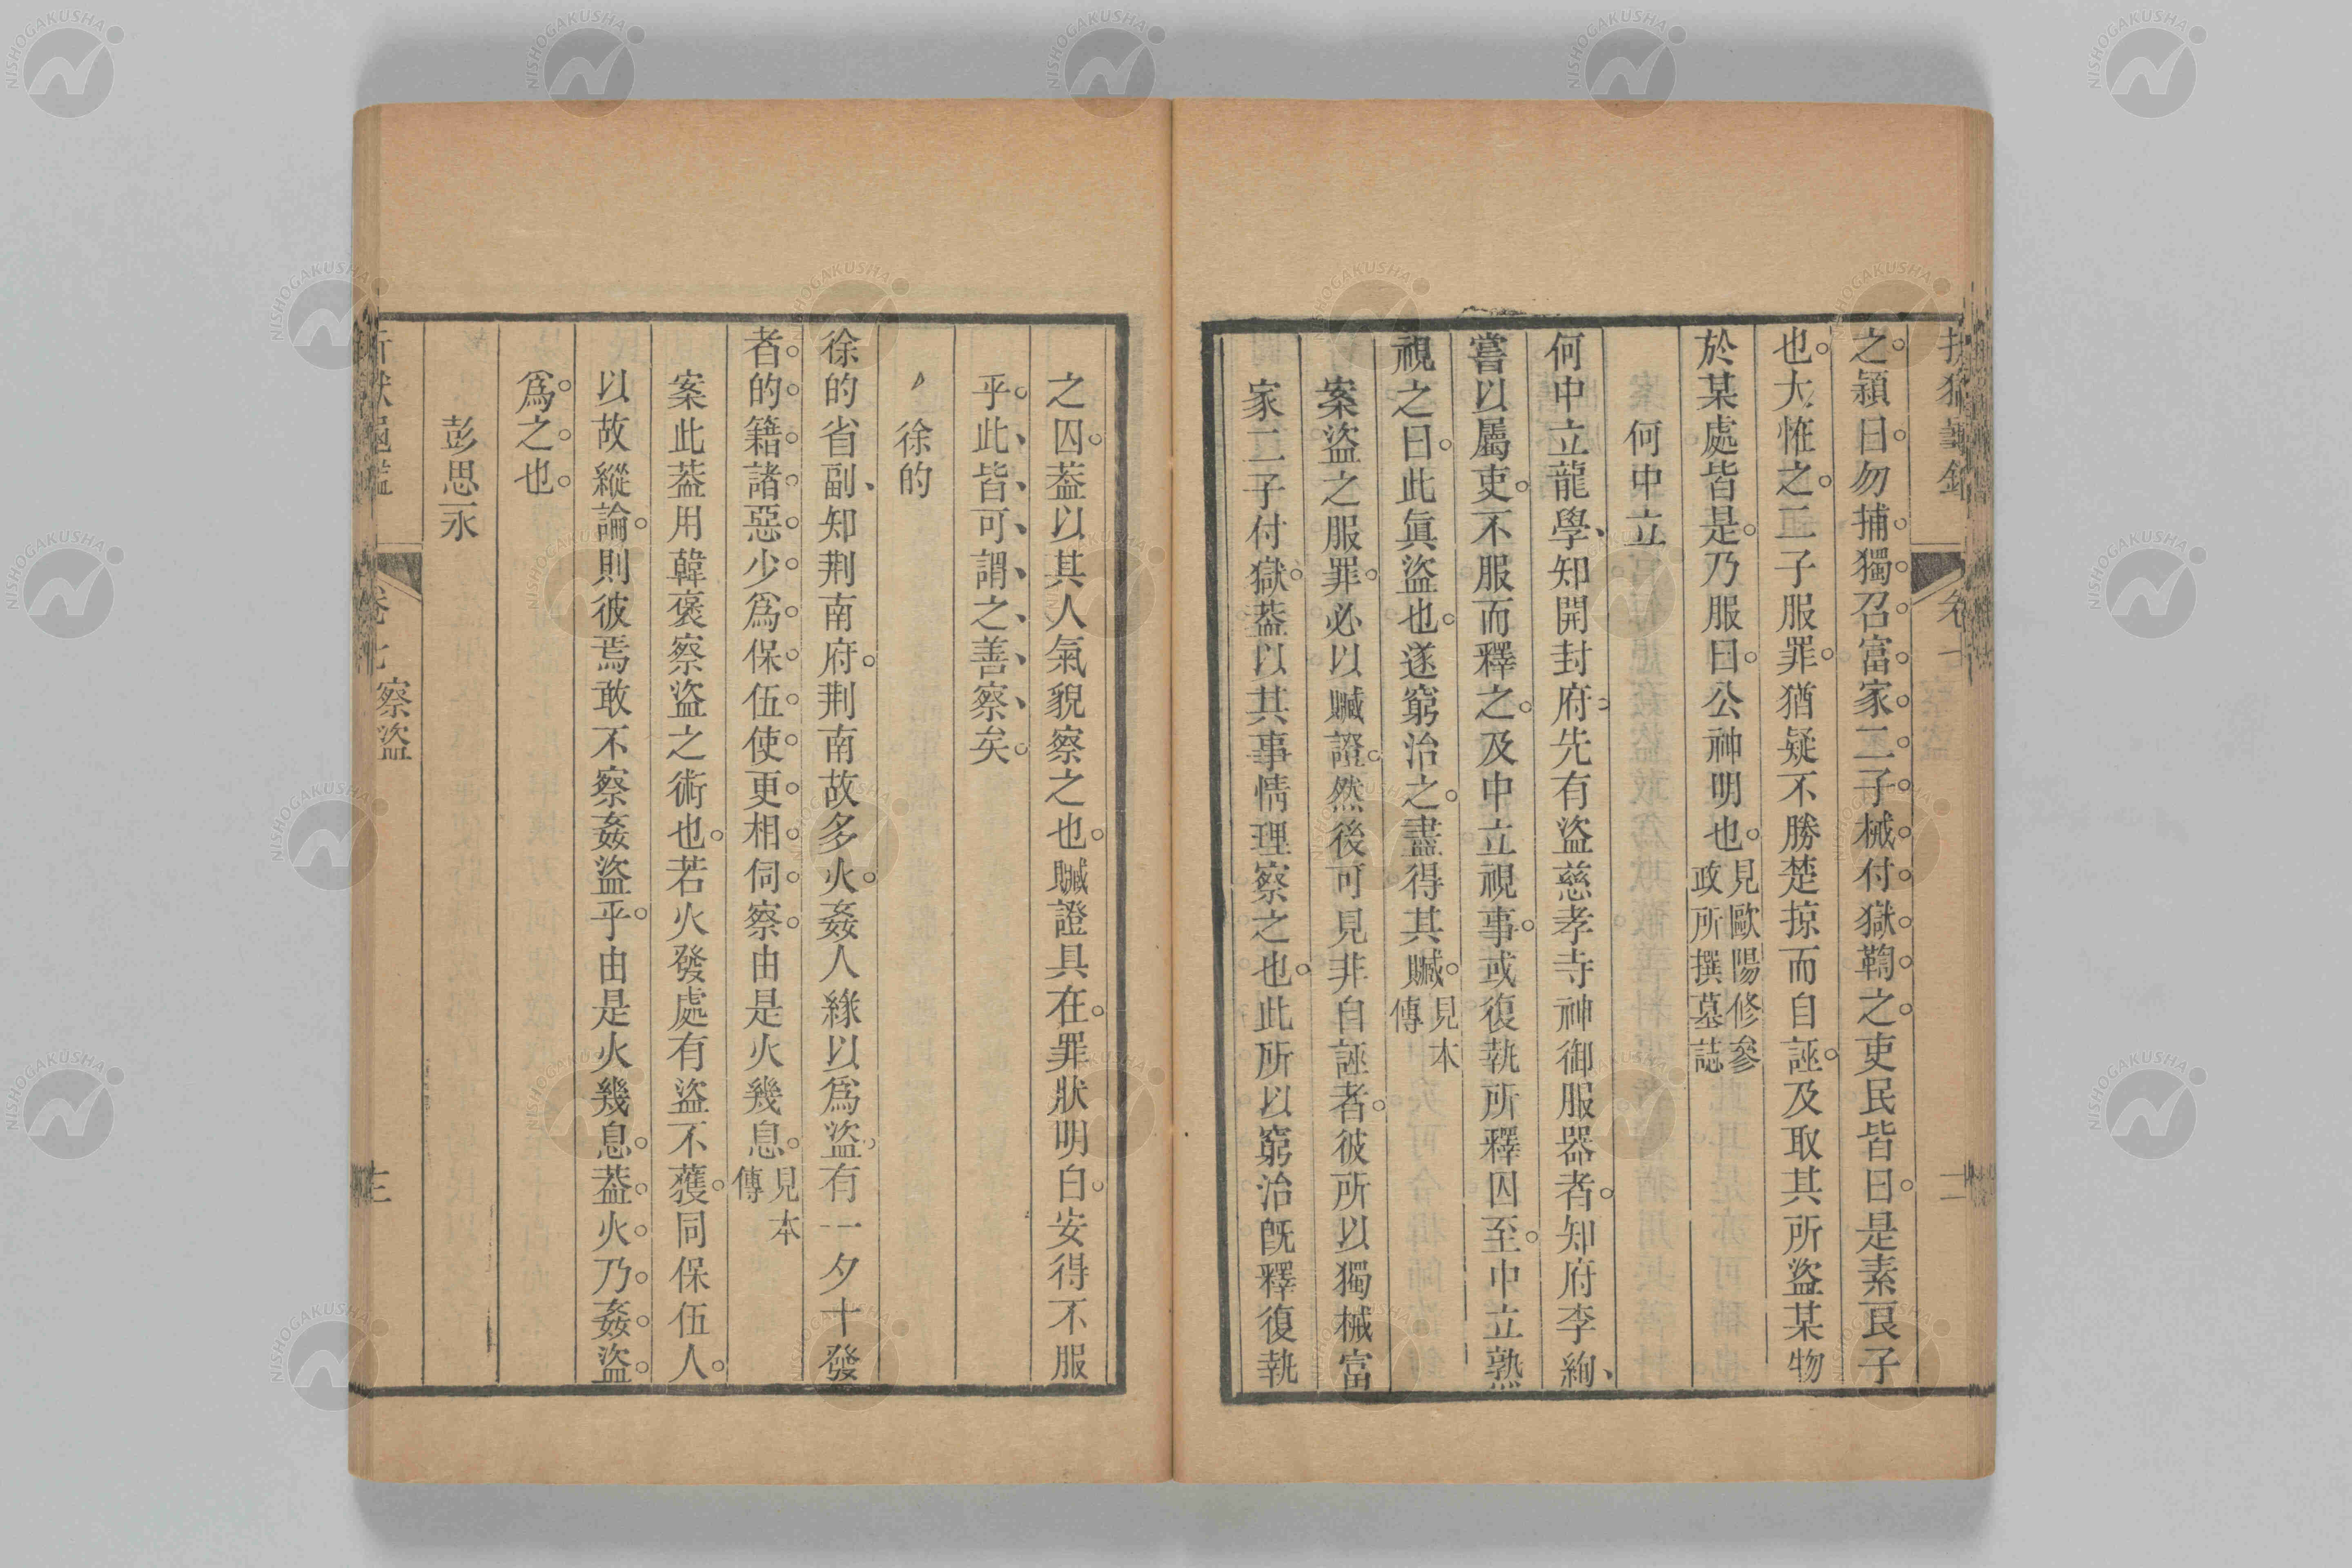 之。潁曰。勿捕。獨。召。富。家。二。子。械。付。獄。鞫。之。吏民皆曰。是素良子
也。大惟之。二子服罪。猶疑不勝楚掠而自誣。及取其所盜某物
於某處皆是。乃服曰。公神明也。見歐陽修參政所撰墓誌
何中立
何中立龍學、知開封府。先有盜慈孝寺神御服器者。知府李絢、
嘗以屬吏。不服而釋之。及中立視事。或復執所釋囚至。中立熟
視之曰。此眞盜也。遂窮治之。盡得其贓。見本傳
案盜之服罪。必以贓證。然後可見非自誣者。彼所以獨械富
家二子付獄。葢以其事情理察之也。此所以窮治旣釋復執
之囚。葢以其人氣貌察之也。贓證具在。罪狀明白。安得不服
乎。此、皆、可、謂、之、善、察、矣。
徐的
徐的省副、知荆南府。荆南故多火。姦人緣以爲盜。有一夕十發
者。的。籍。諸。惡。少。爲。保。伍。使。更。相。伺。察。由是火幾息。見本傳
案此葢用韓褒察盜之術也。若火發處有盜不獲。同保伍人。
以故縱論。則彼焉敢不察姦盜乎。由是火幾息。葢。火。乃。姦。盜。
爲。之。也。
彭思永
卷七
察盜